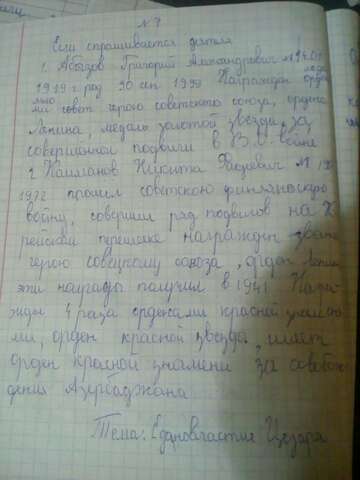 № 7
Если спрашивается деятели
г. Абызов Григорий Александрович №
1919 г род 20 сен 1999 Награжден орде
ми совет. герою советского союза, ордена
Ленина, медаль золотой звезды, за
совершённой подвиги в В.О. войне
г Кайманов Никита Фадеевич №
1972 прошел советскою финляндскую
войну, совершил ряд подвигов на К
рейской перешейке награжден зван
герою совецкому союза, орден Ленин
эти награды получил в 1941. Награ
жды 4 раза орденами красной знамен
ми, орден красной звезда, имеет
орден красной знамени за
дения Азербаджана
Тема: Едновластие Цезаря